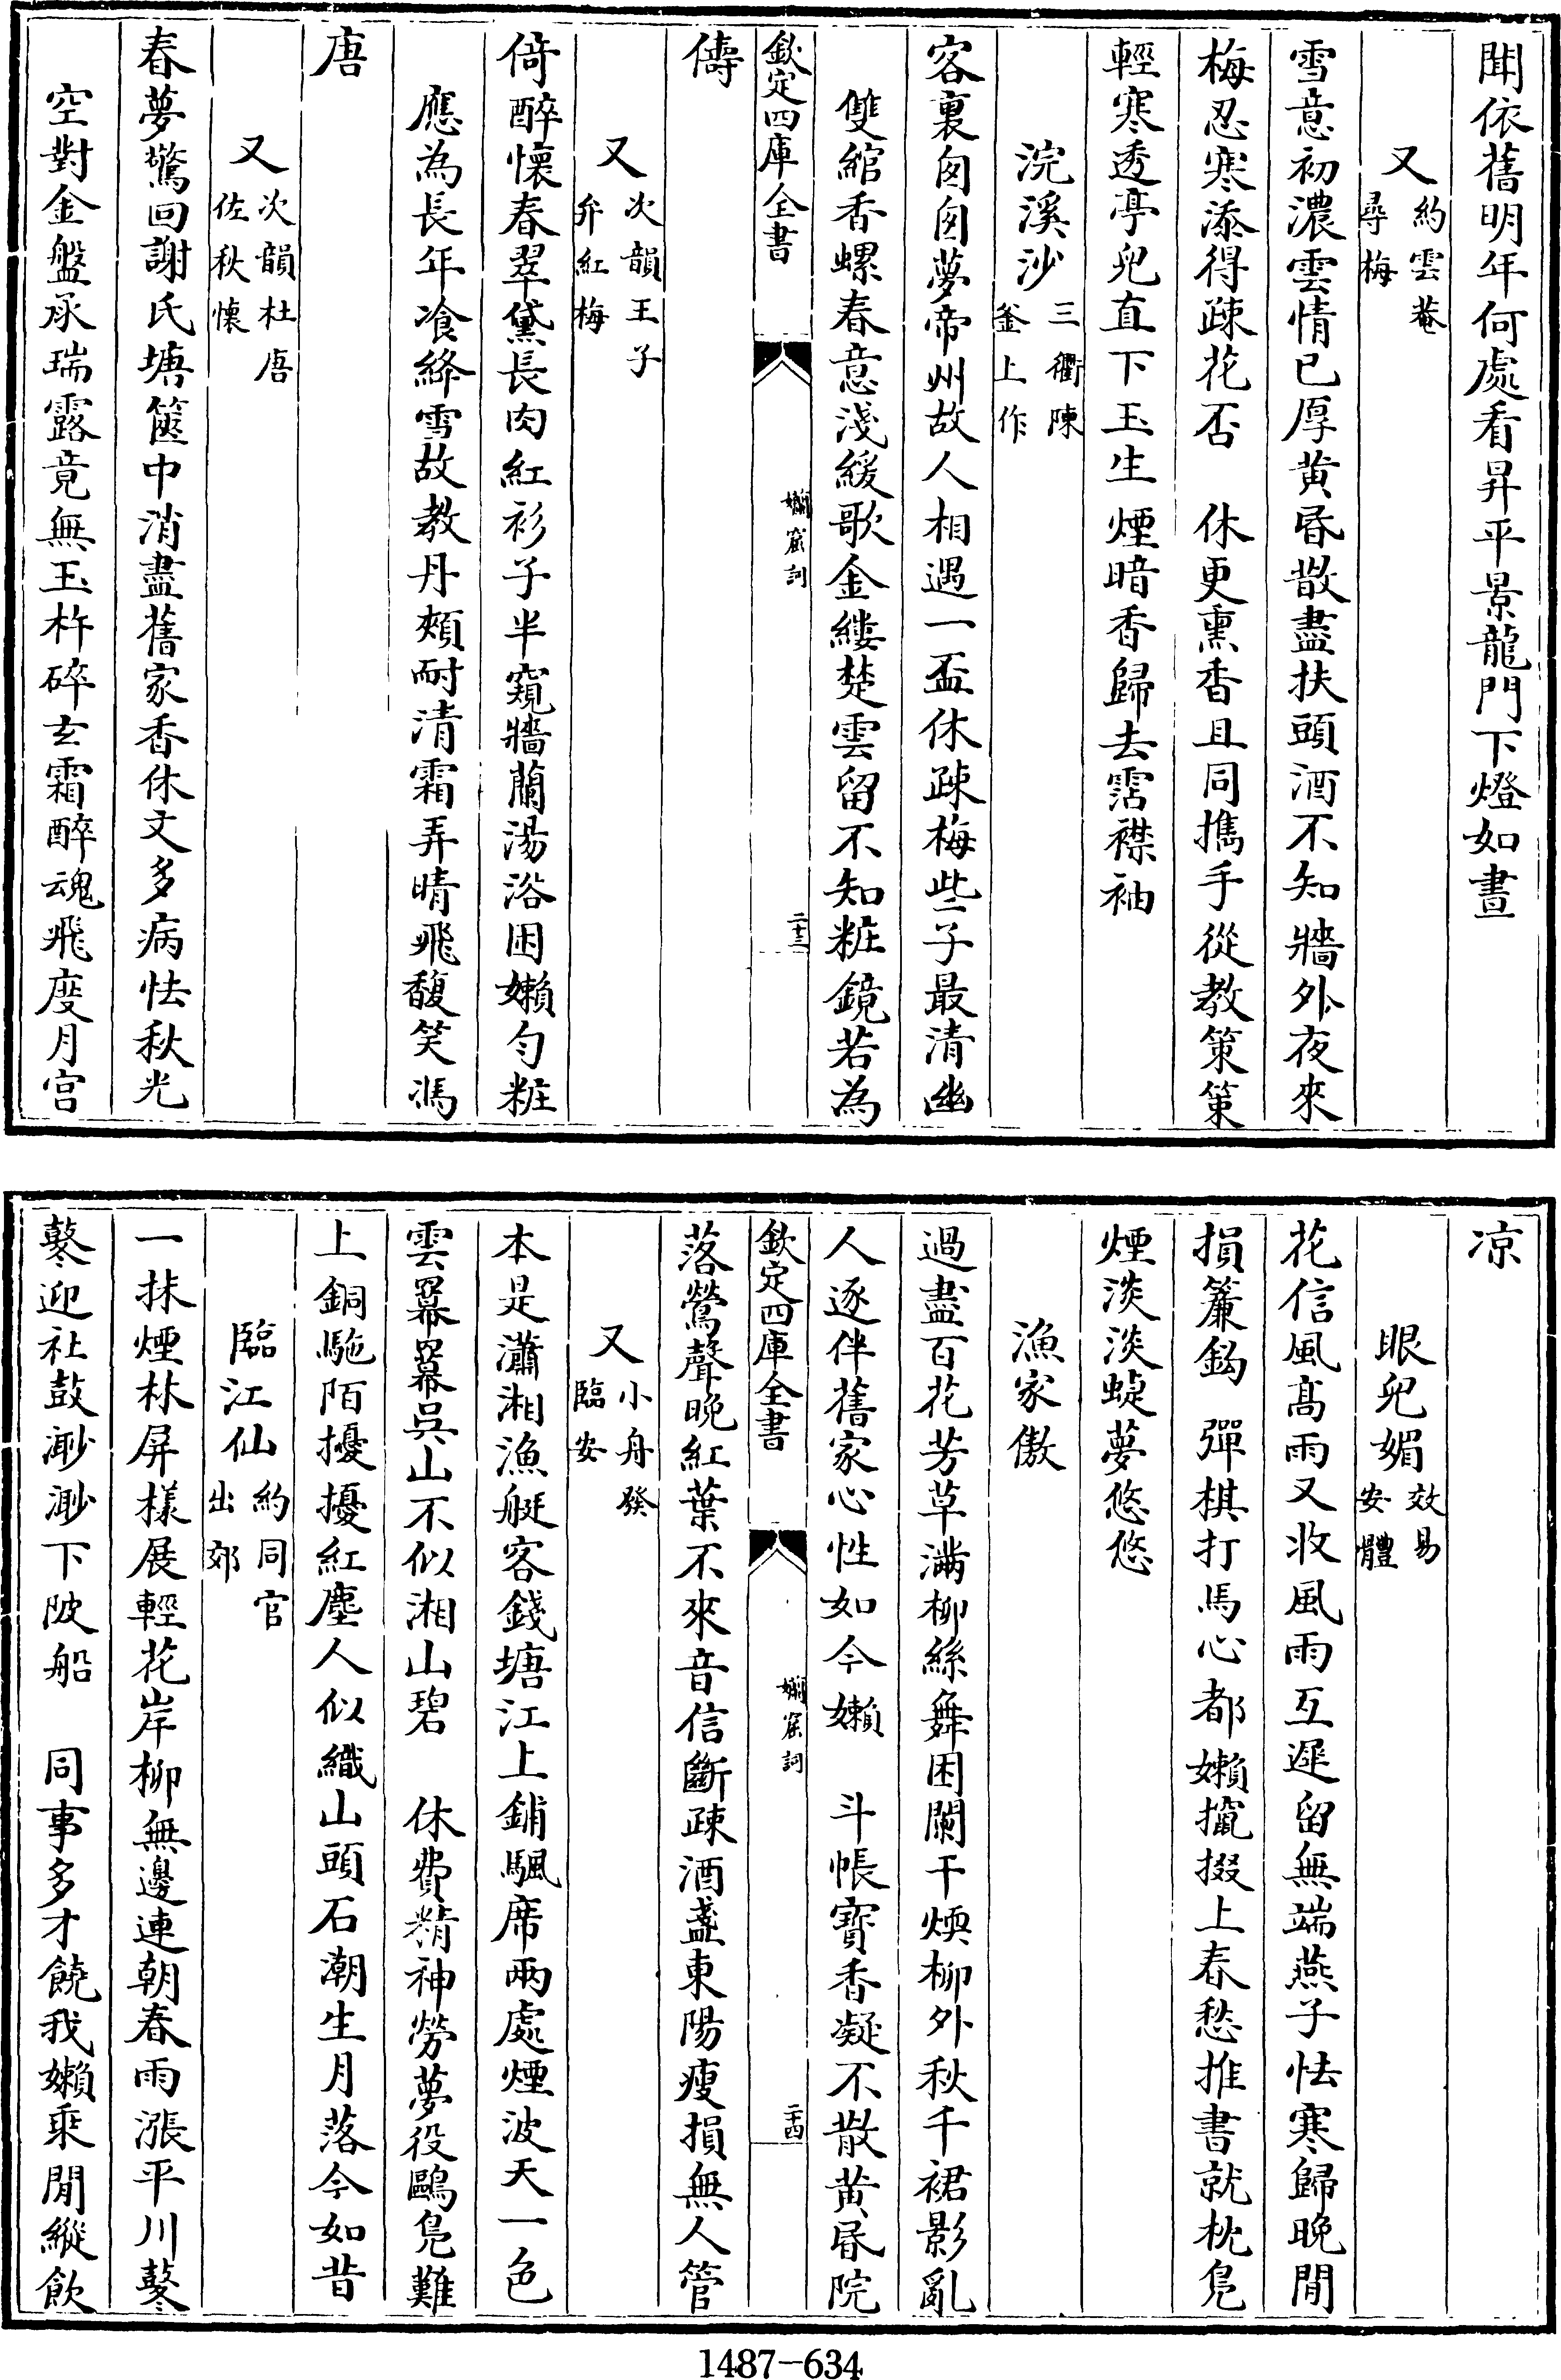 聞依舊明年何處看昇平景龍門下燈如晝
又約雲菴尋梅
雪意初濃雲情已厚黄昏散盡扶頭酒不知牆外夜來
梅忍寒添得疎花否　休更熏香且同攜手從教策策
輕寒透亭兒直下玉生煙暗香歸去霑襟袖
浣溪沙三衢陳釜上作
客裏匆匆夢帝州故人相遇一盃休疎梅些子最清幽
雙綰香螺春意淺緩歌金縷楚雲留不知粧鏡若為
欽定四庫全書
嬾窟詞
二十三
儔
又次韻王子弁紅梅
倚醉懷春翠黛長肉紅衫子半窺牆蘭湯浴困嬾匀粧
應為長年飡絳雪故教丹頰耐清霜弄晴飛馥笑馮
唐
又次韻杜唐佐秋懷
春夢驚回謝氏塘篋中消盡舊家香休文多病怯秋光
空對金盤承瑞露竟無玉杵碎玄霜醉魂飛度月宫
凉
眼兒媚效易安體
花信風髙雨又收風雨互遲留無端燕子怯寒歸晚閒
損簾鈎　彈棋打馬心都嬾攛掇上春愁推書就枕鳬
煙淡淡蜨夢悠悠
漁家傲
過盡百花芳草滿柳絲舞困闌干煗柳外秋千裙影亂
人逐伴舊家心性如今嬾　斗帳寳香凝不散黄昏院
欽定四庫全書
嬾窟詞
二十四
落鶯聲晚紅葉不來音信斷疎酒盞東陽瘦損無人管
又小舟發臨安
本是瀟湘漁艇客錢塘江上鋪颿席兩處煙波天一色
雲羃羃吳山不似湘山碧　休費精神勞夢役鷗鳬難
上銅駞陌擾擾紅塵人似織山頭石潮生月落今如昔
臨江仙約同官出郊
一抹煙林屏様展輕花岸柳無邊連朝春雨漲平川鼕
鼕迎社鼓渺渺下陂船　同事多才饒我嬾乘閒縱飲
1487-634